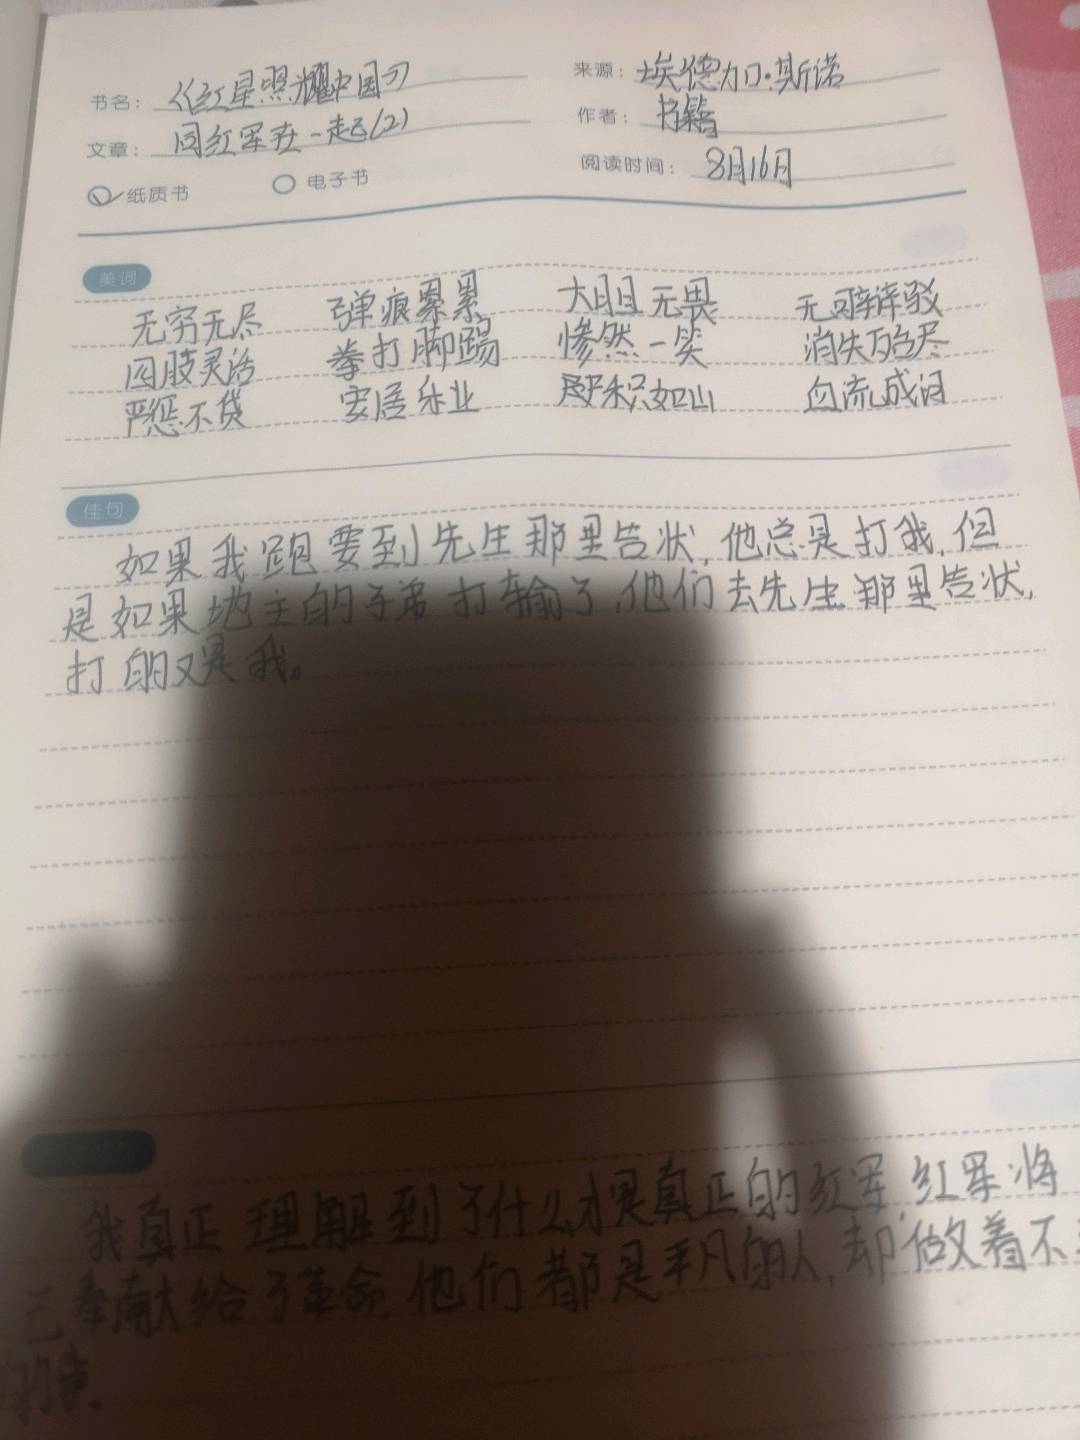 书名：《红星照耀中国》 来源：埃德加·斯诺
文章：同红军在一起(2) 作者：书籍
纸质书 电子书 阅读时间：8月16日
美词
无穷无尽 弹痕累累 大胆无畏 无可辩驳
四肢灵活 拳打脚踢 惨然一笑 消失殆尽
严惩不贷 安居乐业 积如山 血流成河
佳句
如果我跑要到先生那里告状,他总是打我,但
是如果地主的子弟打输了,他们去先生那里告状,
打的又是我。
我真正理解到了什么才是真正的红军,红军将
己奉献给了革命,他们都是平凡的人,却做着不
的